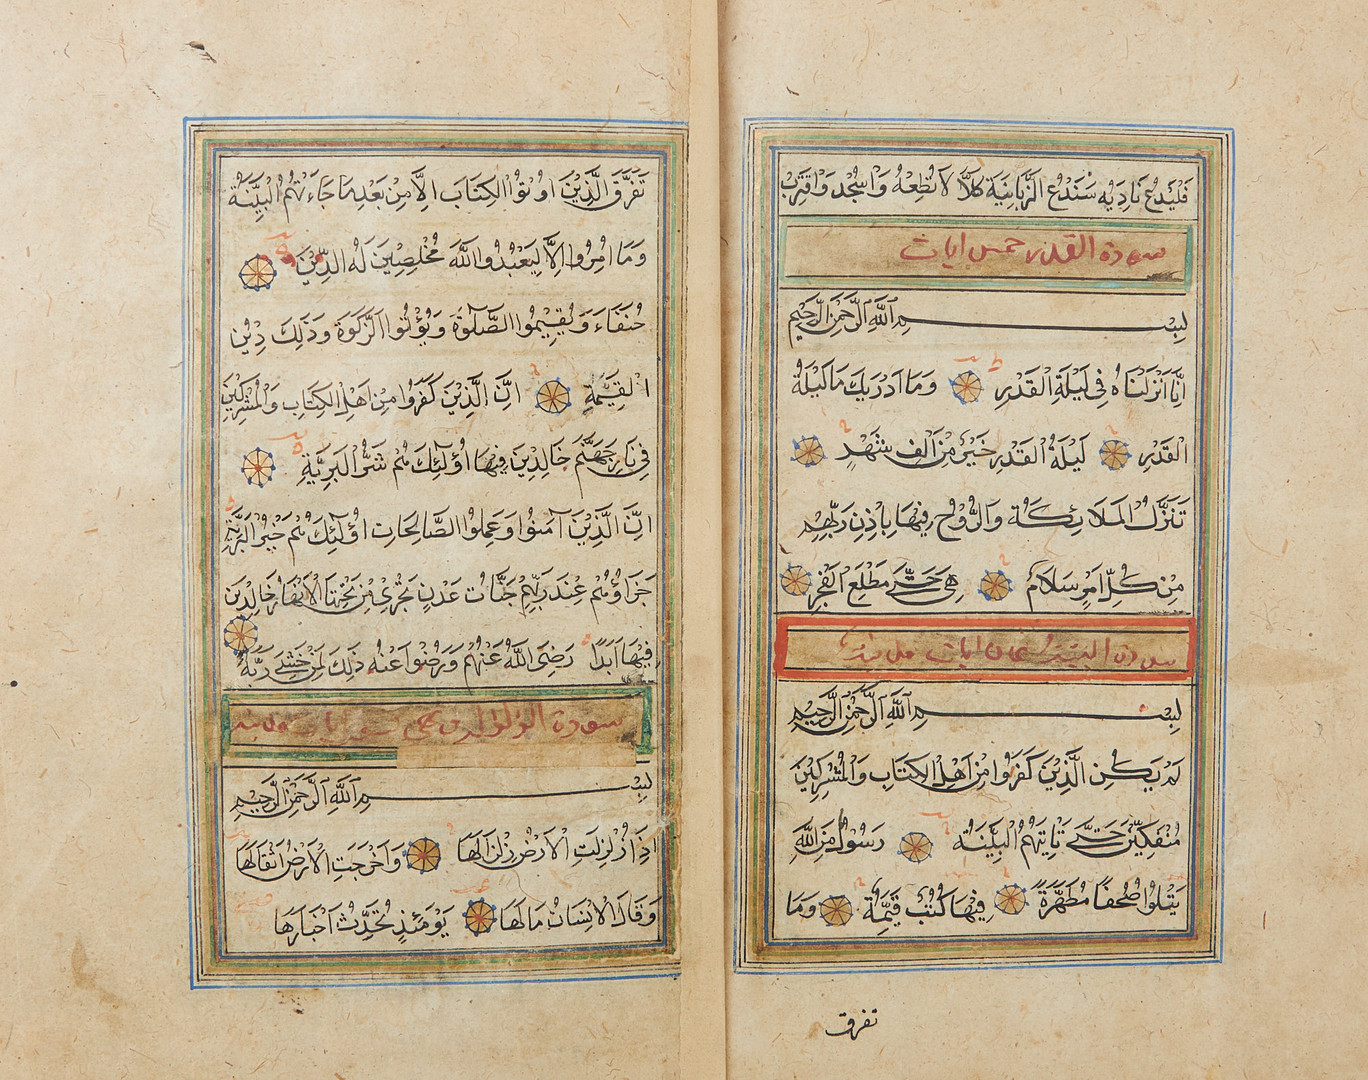 فَلْيَدْعُ نَادِيَه سَنَدْعُ الزَّبَانِيَة كَلَّا لَا تُطِعْهُ وَاسْجُد وَاقْتَرِب
سورة القدر خمس ايات
بِسْمِ اللَّهِ الرَّحْمَنِ الرَّحِيمِ
اِنَّا اَنْزَلْنَاهُ فِي لَيْلَةِ الْقَدْرِ وَمَا اَدْرَيكَ مَا لَيْلَةُ
الْقَدْرِ لَيْلَةُ الْقَدْرِ خَيْرٌ مِنْ اَلْفِ شَهْرٍ
تَنَزَّلُ الْمَلَائِكَةُ وَالرُّوحُ فِيهَا بِاِذْنِ رَبِّهِمْ
مِنْ كُلِّ اَمْرٍ سَلَامٌ هِيَ حَتَّى مَطْلَعِ الْفَجْرِ
سورة البينة ثمان ايات
بِسْمِ اللَّهِ الرَّحْمَنِ الرَّحِيمِ
لَمْ يَكُنِ الَّذِينَ كَفَرُوا مِنْ اَهْلِ الْكِتَابِ وَالْمُشْرِكِينَ
مُنْفَكِّينَ حَتَّى تَاْتِيَهُمُ الْبَيِّنَةُ رَسُولٌ مِنَ اللَّهِ
يَتْلُوا صُحُفًا مُطَهَّرَةً فِيهَا كُتُبٌ قَيِّمَةٌ وَمَا
تفرق
تَفَرَّقَ الَّذِينَ اُوتُوا الْكِتَابَ اِلَّا مِنْ بَعْدِ مَا جَاءَتْهُمُ الْبَيِّنَةُ
وَمَا اُمِرُوا اِلَّا لِيَعْبُدُوا اللَّهَ مُخْلِصِينَ لَهُ الدِّينَ
حُنَفَاءَ وَيُقِيمُوا الصَّلَوةَ وَيُؤْتُوا الزَّكَوةَ وَذَلِكَ دِينُ
الْقَيِّمَةِ اِنَّ الَّذِينَ كَفَرُوا مِنْ اَهْلِ الْكِتَابِ وَالْمُشْرِكِينَ
فِي نَارِ جَهَنَّمَ خَالِدِينَ فِيهَا اُولَئِكَ هُمْ شَرُّ الْبَرِيَّةِ
اِنَّ الَّذِينَ آمَنُوا وَعَمِلُوا الصَّالِحَاتِ اُولَئِكَ هُمْ خَيْرُ الْبَرِيَّةِ
جَزَاؤُهُمْ عِنْدَ رَبِّهِمْ جَنَّاتُ عَدْنٍ تَجْرِي مِنْ تَحْتِهَا الْاَنْهَارُ خَالِدِينَ
فِيهَا اَبَدًا رَضِيَ اللَّهُ عَنْهُمْ وَرَضُوا عَنْهُ ذَلِكَ لِمَنْ خَشِيَ رَبَّهُ
سورة الزلزال
بِسْمِ اللَّهِ الرَّحْمَنِ الرَّحِيمِ
اِذَا زُلْزِلَتِ الْاَرْضُ زِلْزَالَهَا وَاَخْرَجَتِ الْاَرْضُ اَثْقَالَهَا
وَقَالَ الْاِنْسَانُ مَا لَهَا يَوْمَئِذٍ تُحَدِّثُ اَخْبَارَهَا